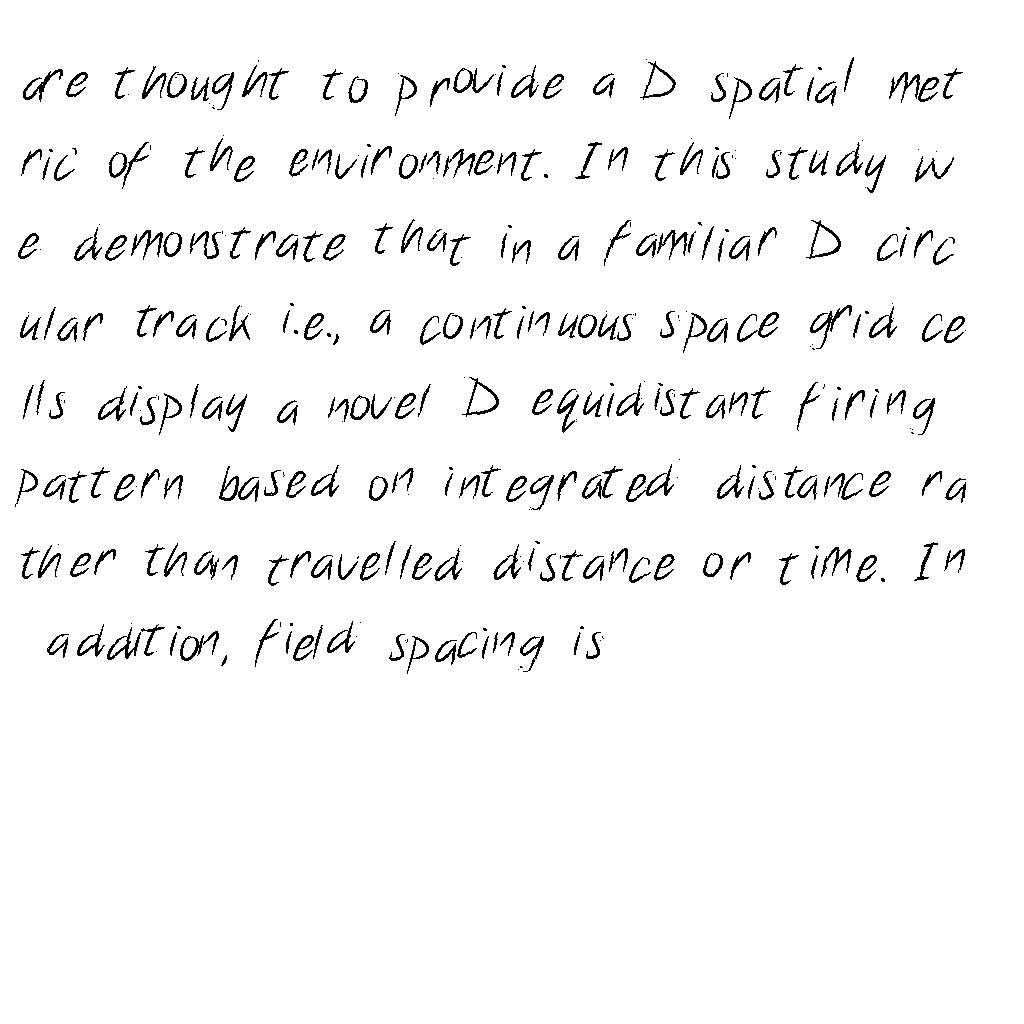 are thought to provide a D spatial met
ric of the environment. In this study w
e demonstrate that in a familiar D circ
ular track i.e., a continuous space grid ce
lls display a novel D equidistant firing
pattern based on integrated distance ra
ther than travelled distance or time. In
addition, field spacing is